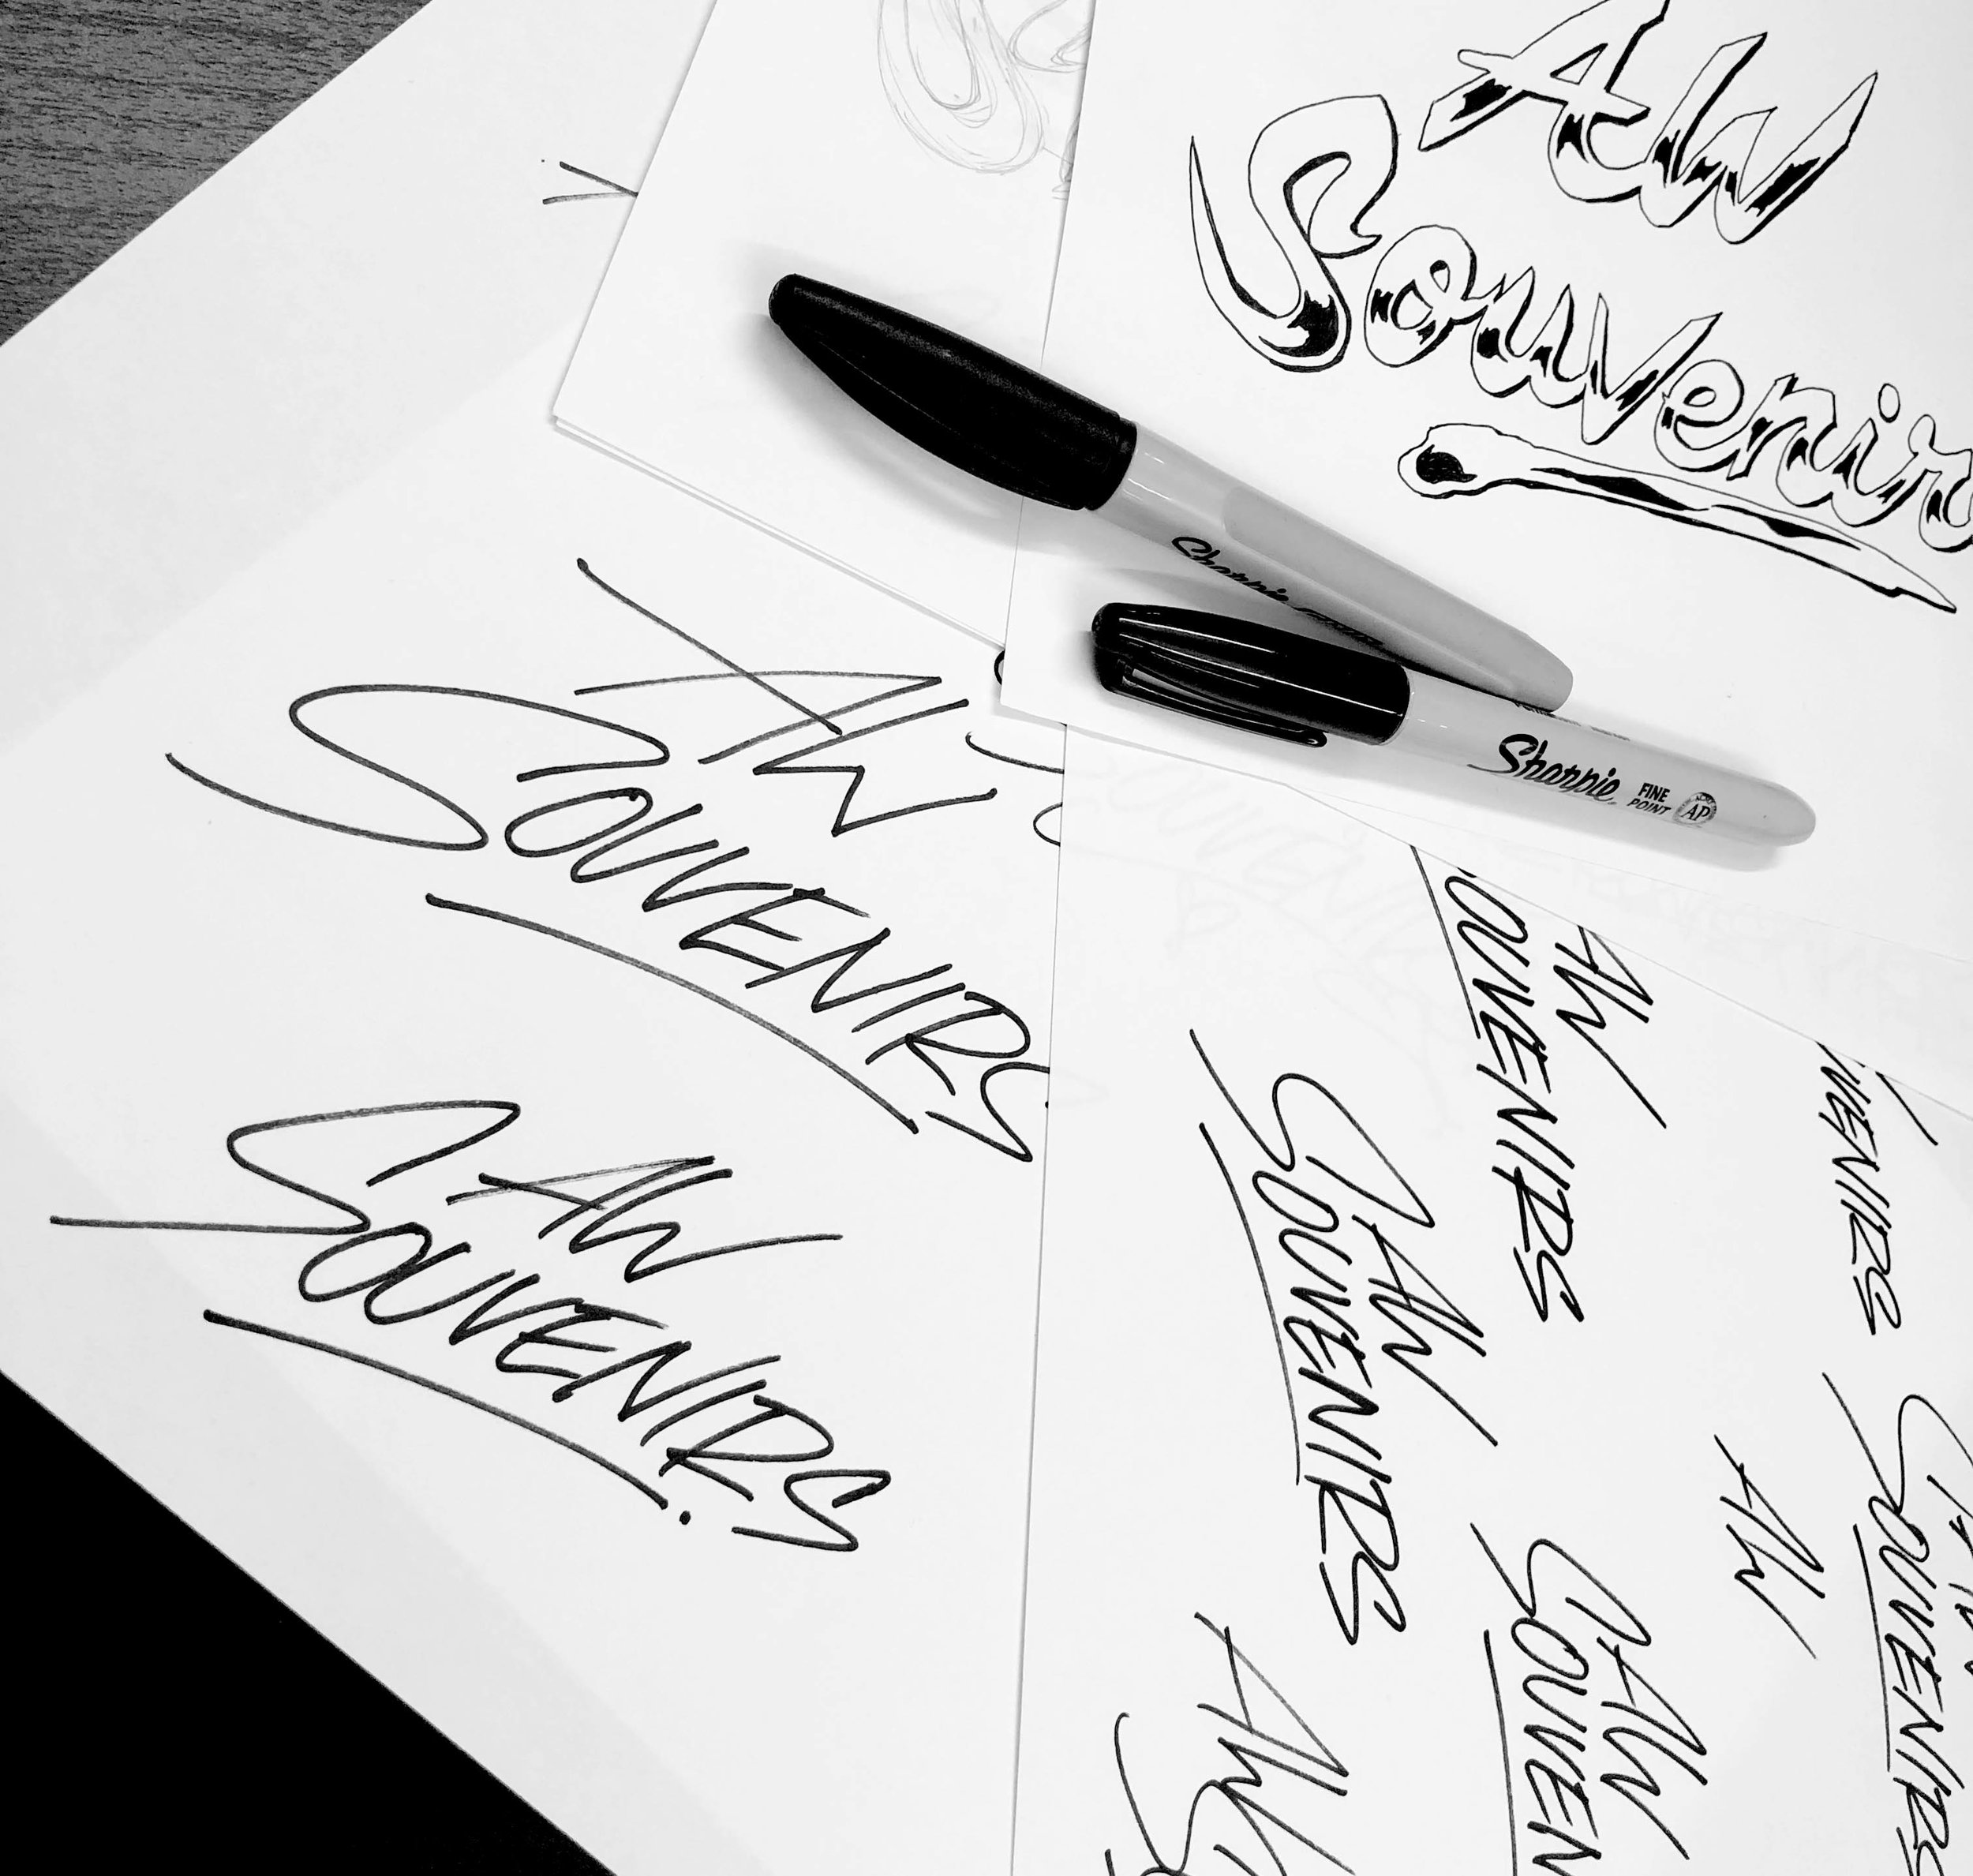 AW
Souvenirs
Sharpie
Sharpie
FINE
POINT
AP
AW
SOUVENIRS
AW
SOUVENIRS
AW
OUVENIRS
VENIRS
AW
SOUVENIRS
AW
SOUVENIRS
AW
SOUVEN
AW